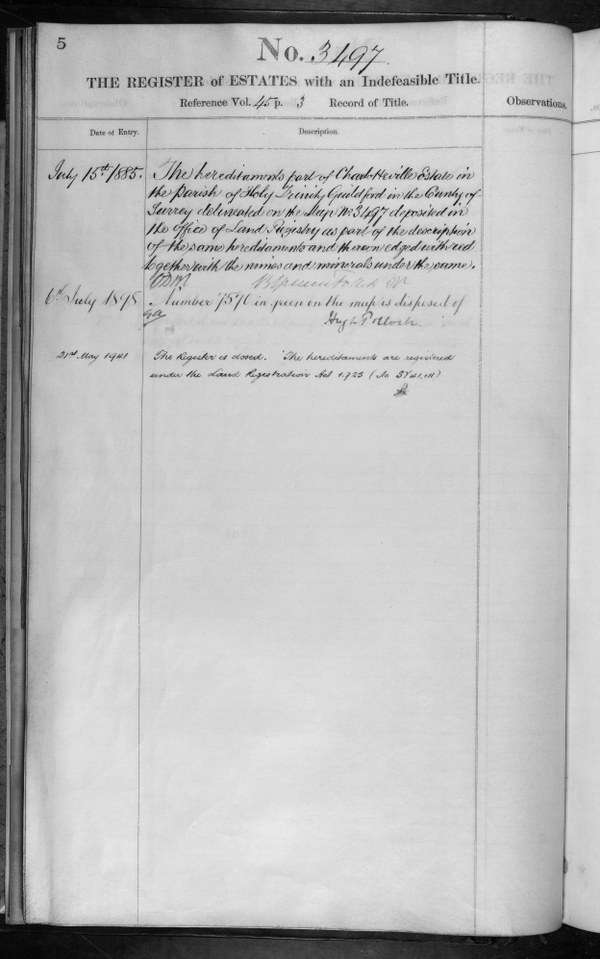 5
No. 3497
THE REGISTER of ESTATES with an Indefeasible Title.
Reference Vol. 45 p. 3 Record of Title.
Observations.
Date of Entry. Description.
July 15th 1885. The hereditaments part of Estate in
the Parish of Holy Trinity Guildford in the County of
Surrey delineated on the Map No 3497 deposited in
the Office of Land Registry as part of the description
of the same hereditaments and thereon edged with red
together with the mines and minerals under the same.
6th July 1898 Number 7570 in green on the map is disposed of
Hugh Pollock
21st May 1941 The Register is closed. The hereditaments are registered
under the Land Registration Act 1925